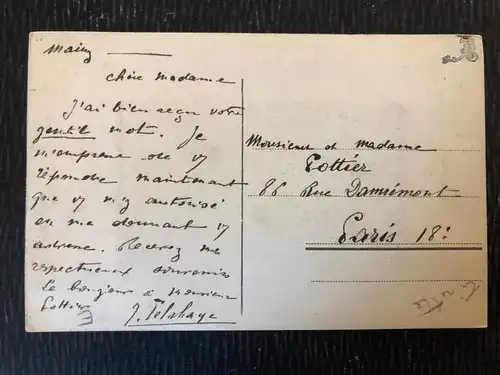 Mainz
Chère Madame
J'ai bien reçu votre
gentil mot. Je
m'empresse de
répondre maintenant
que m'y autorisé
en me donnant
adresse. Recevez mes
respectueux souvenirs
Le bonjour à Monsieur
Pottier
J. Delahaye
Monsieur et Madame
Pottier
86 Rue Damrémont
Paris 18e